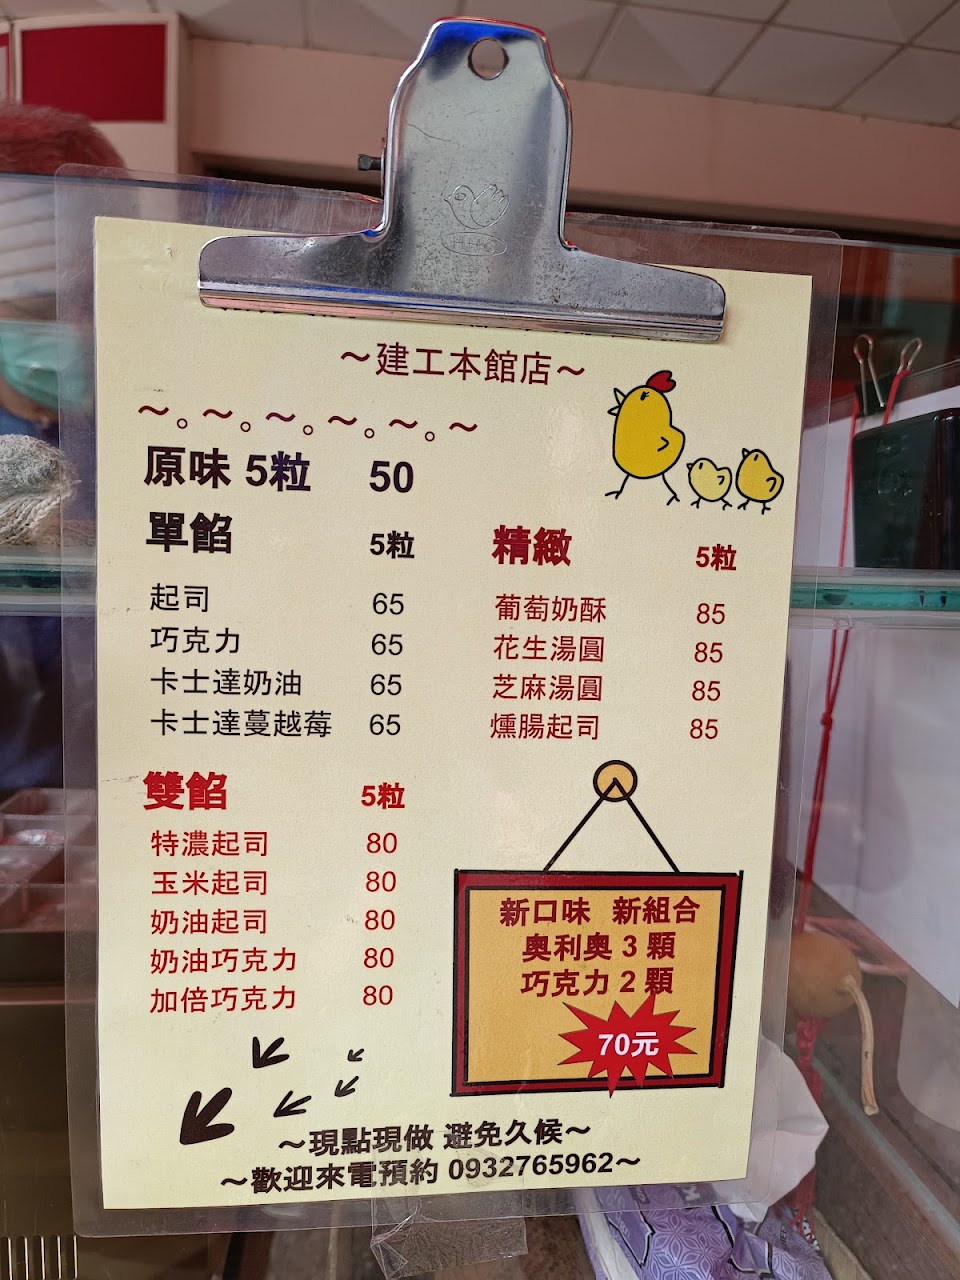 ～建工本館店～
～。～。～。～。～。～
原味 5粒 50
單餡 5粒
起司 65
巧克力 65
卡士達奶油 65
卡士達蔓越莓 65
雙餡 5粒
特濃起司 80
玉米起司 80
奶油起司 80
奶油巧克力 80
加倍巧克力 80
精緻 5粒
葡萄奶酥 85
花生湯圓 85
芝麻湯圓 85
燻腸起司 85
新口味 新組合
奧利奧 3 顆
巧克力 2 顆
70元
～現點現做 避免久候～
～歡迎來電預約 0932765962～